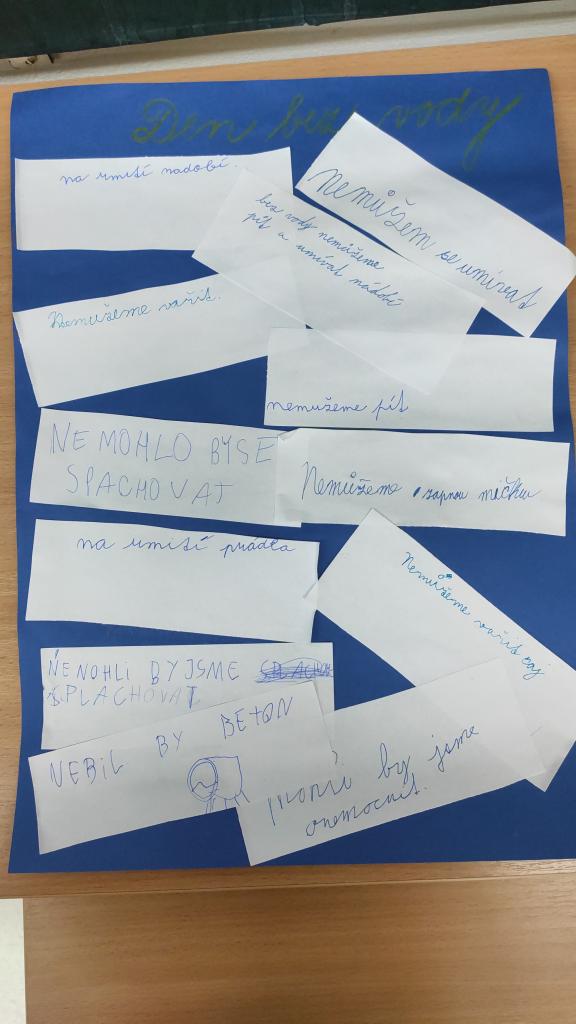 Den bez vody
na umití nadobí.
Nemůžem se umívat
bez vody nemůžeme
pít a umívat nádobí
Nemužeme vařit.
nemužeme pít
NEMOHLO BY SE
SPACHOVAT
Nemůžeme zapnou mičku
na umití prádla
Nemůžeme vařit čaj
NENOHLI BY JSME
SPLACHOVAT
NEBIL BY BETON
by jsme
onemocnit.